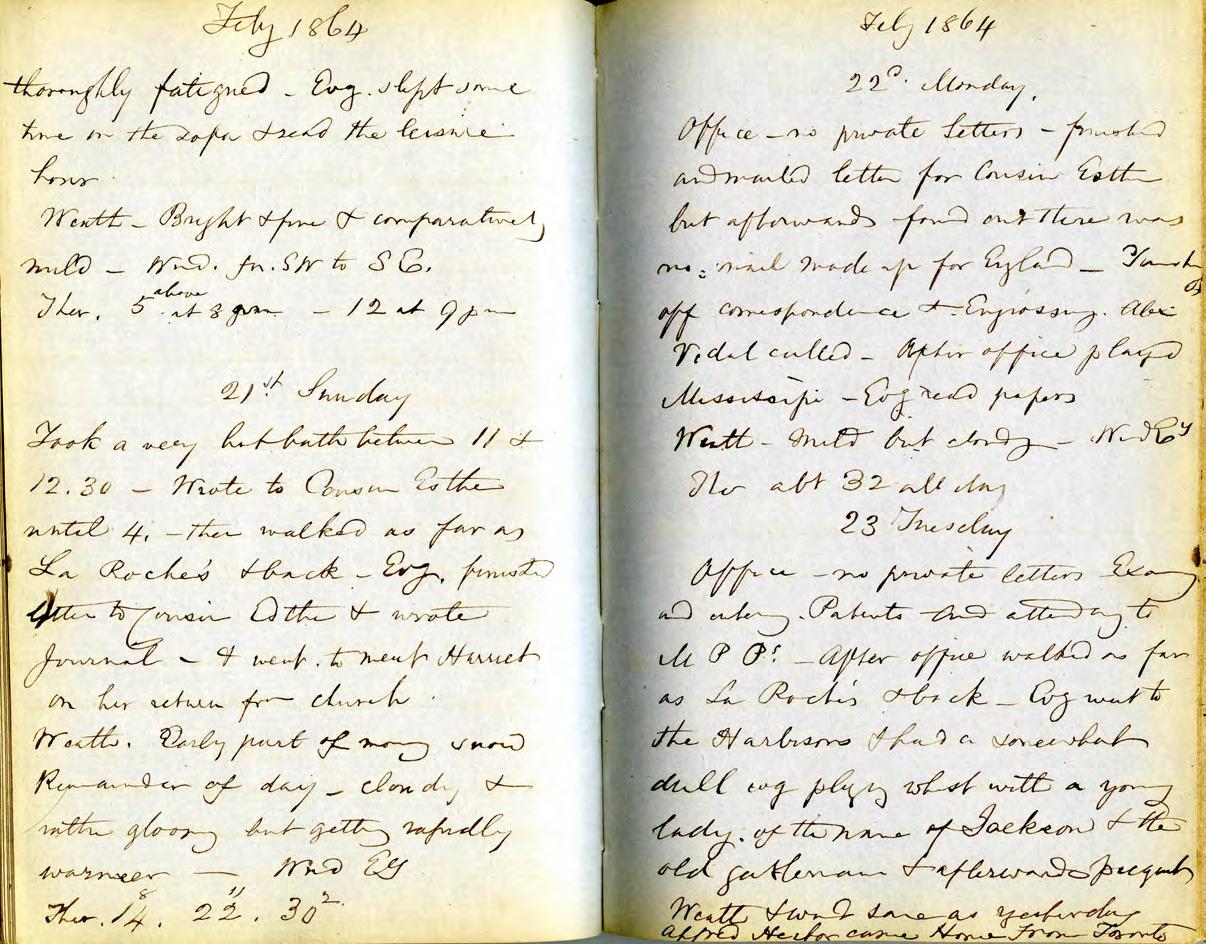 Feby 1864
thoroughly fatigued - Evg. slept some
time on the sopha & read the leisure
hour.
Weath - Bright & fine & comparatively
mild - Wnd. fm. SW to SE.
Ther. 5 above at 8 - 12 at 9 pm
21st Sunday
Took a very hot bath between 11 &
12.30 - Wrote to Cousin Esther
until 4. - then walked as far as
La Roche's & back - Evg. finished
letter to Cousin Esther & wrote
Journal - & went to meet Harriet
on her return from church.
Weathr. Early part of morng snow
Remainder of day - cloudy &
rather gloomy but getting rapidly
warmer - Wnd Ely
Ther. 14 8. 22 11. 30 2.
Feby 1864
22d. Monday.
Office - no private letters - finished
and mailed letter for Cousin Esther
but afterwards found out there was
no mail made up for England -
off correspondence & Engrossing. Alex
Vidal called - After office played
Mississipi - Evg read papers
Weath - mild but cloudy - Wnd Ey
Ther abt 32 all day
23 Tuesday
Office - no private letters Examg
and enterg. Patents and attending to
M P Ps. - After office walked as far
as La Roche's & back - Evg went to
the Harbisons & had a somewhat
dull evg playg whist with a young
lady. of the name of Jackson & the
old gentleman & afterwards picquet
Weath & wnd same as yesterday
Alfred Hector came Home from Toronto